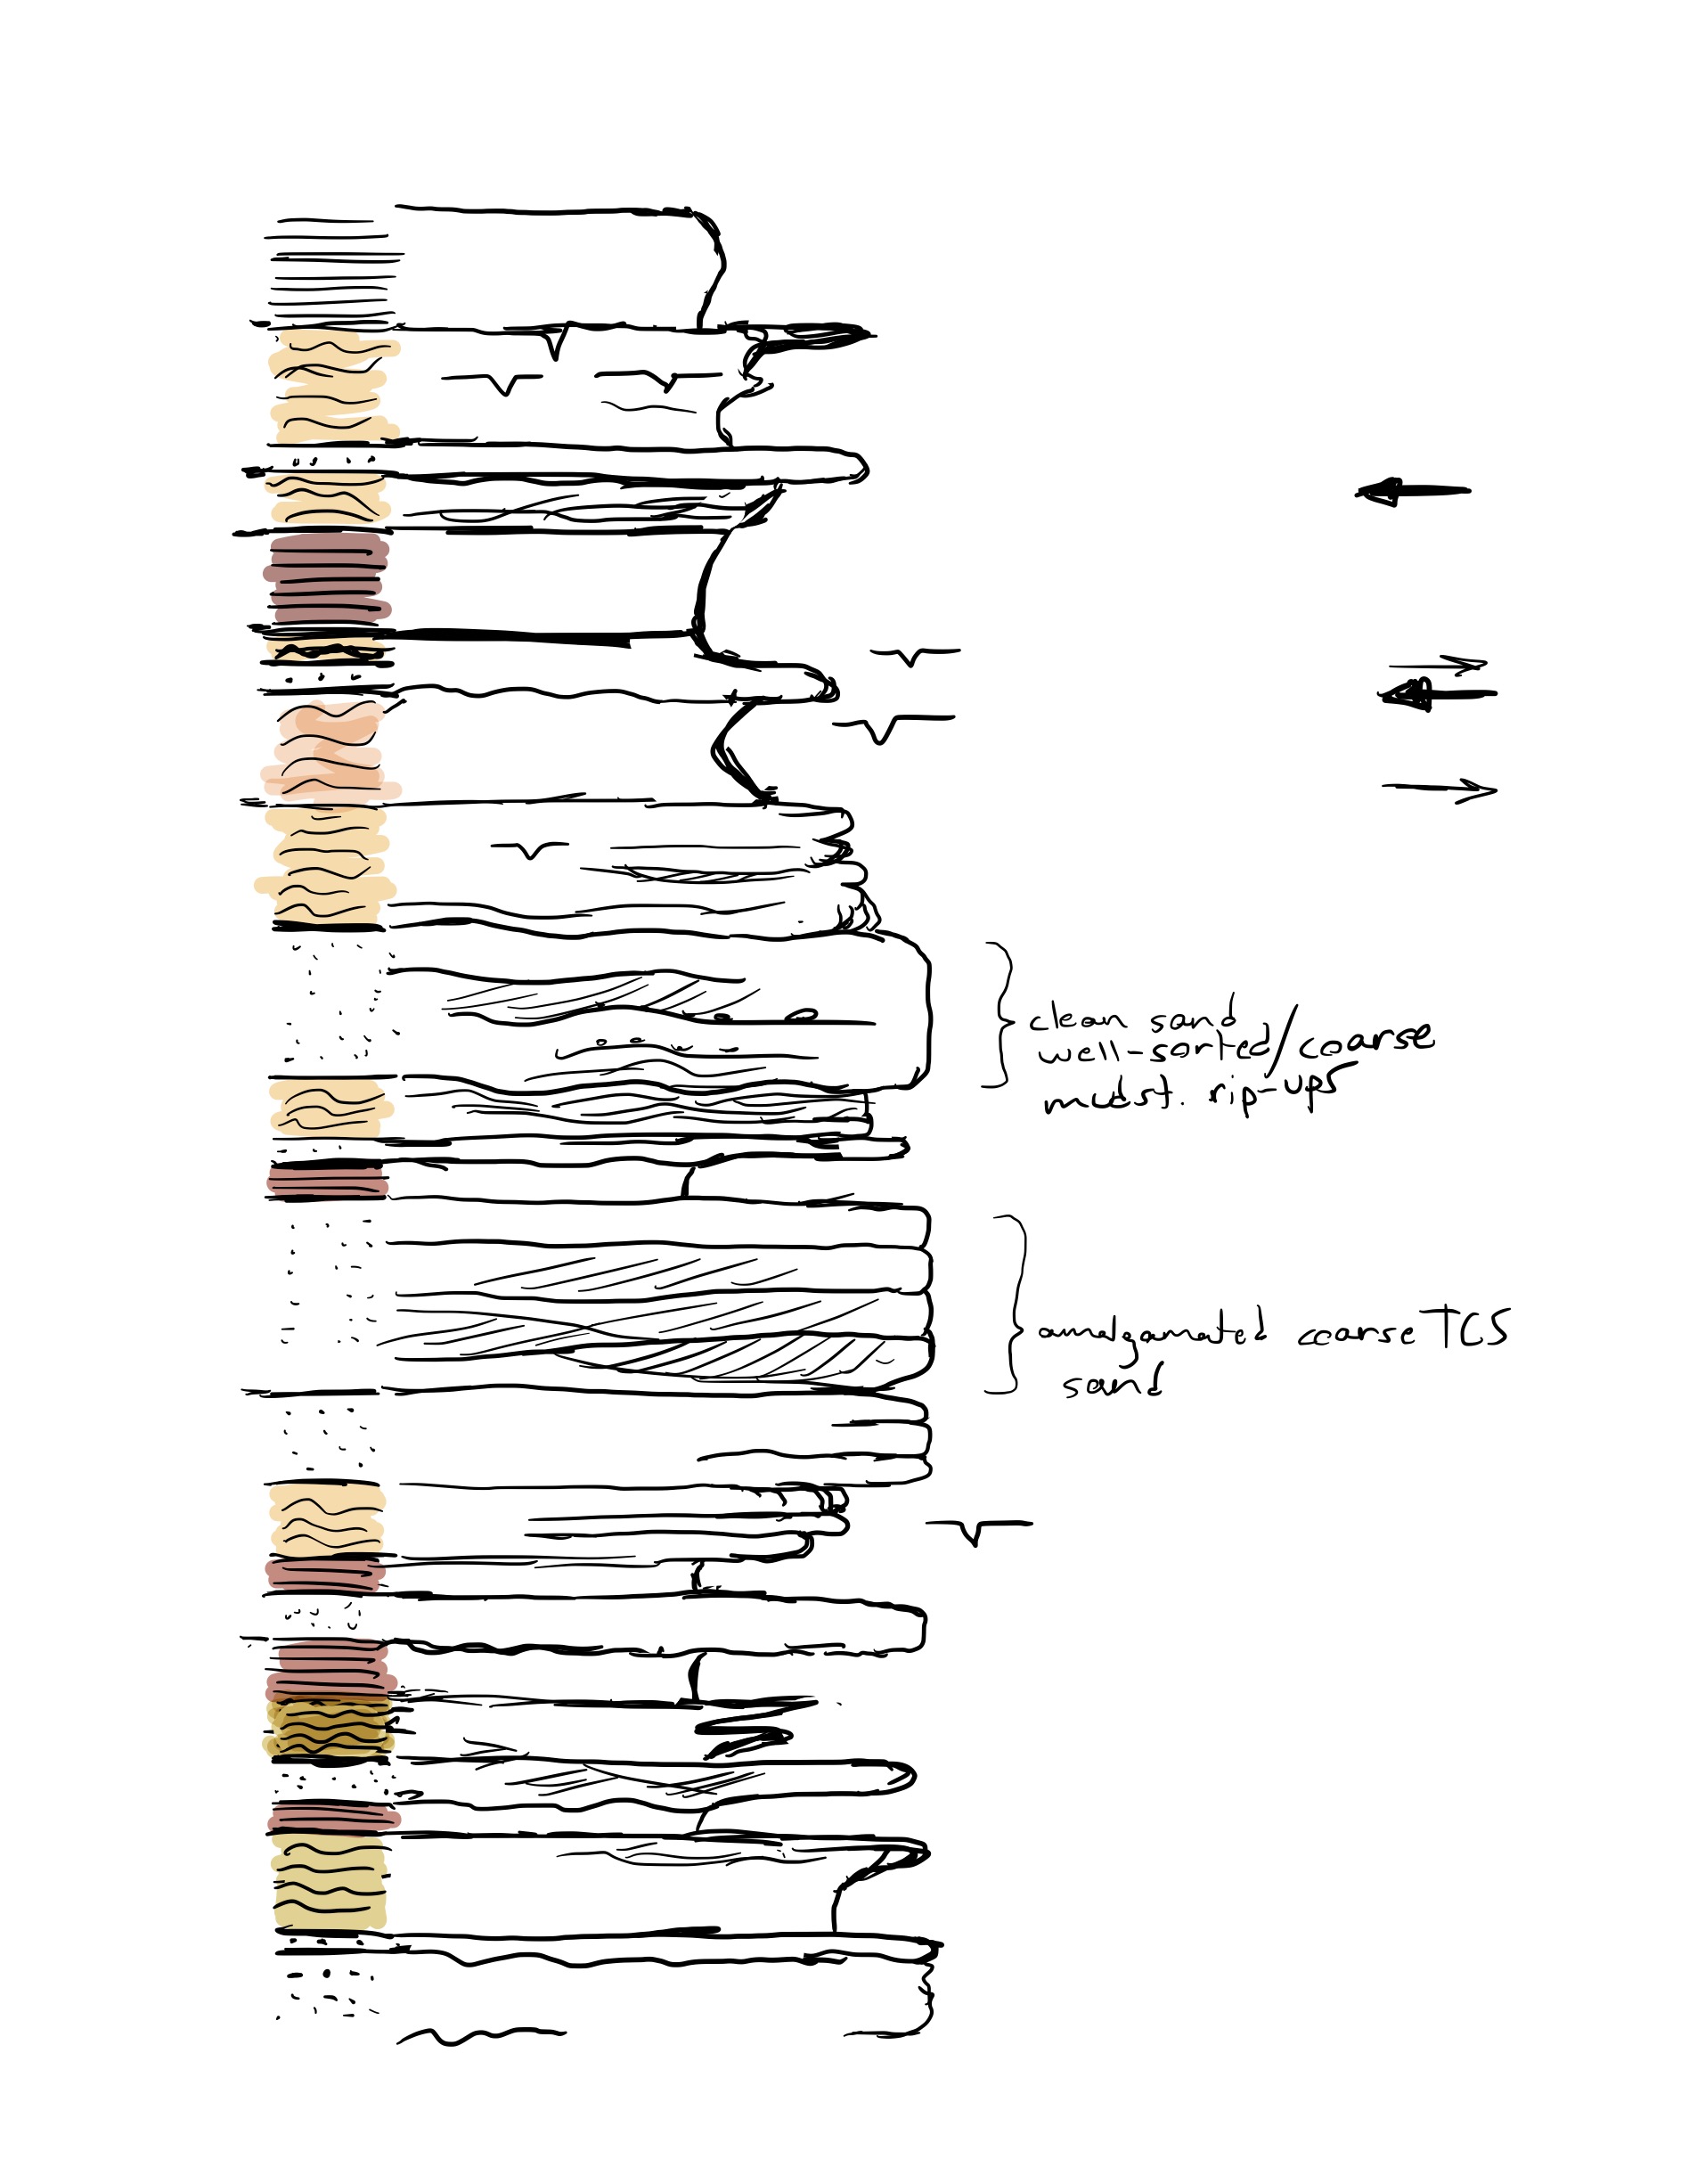 clean sand
well-sorted/coarse
mudst. rip-ups
amalgamated coarse TCS
sand